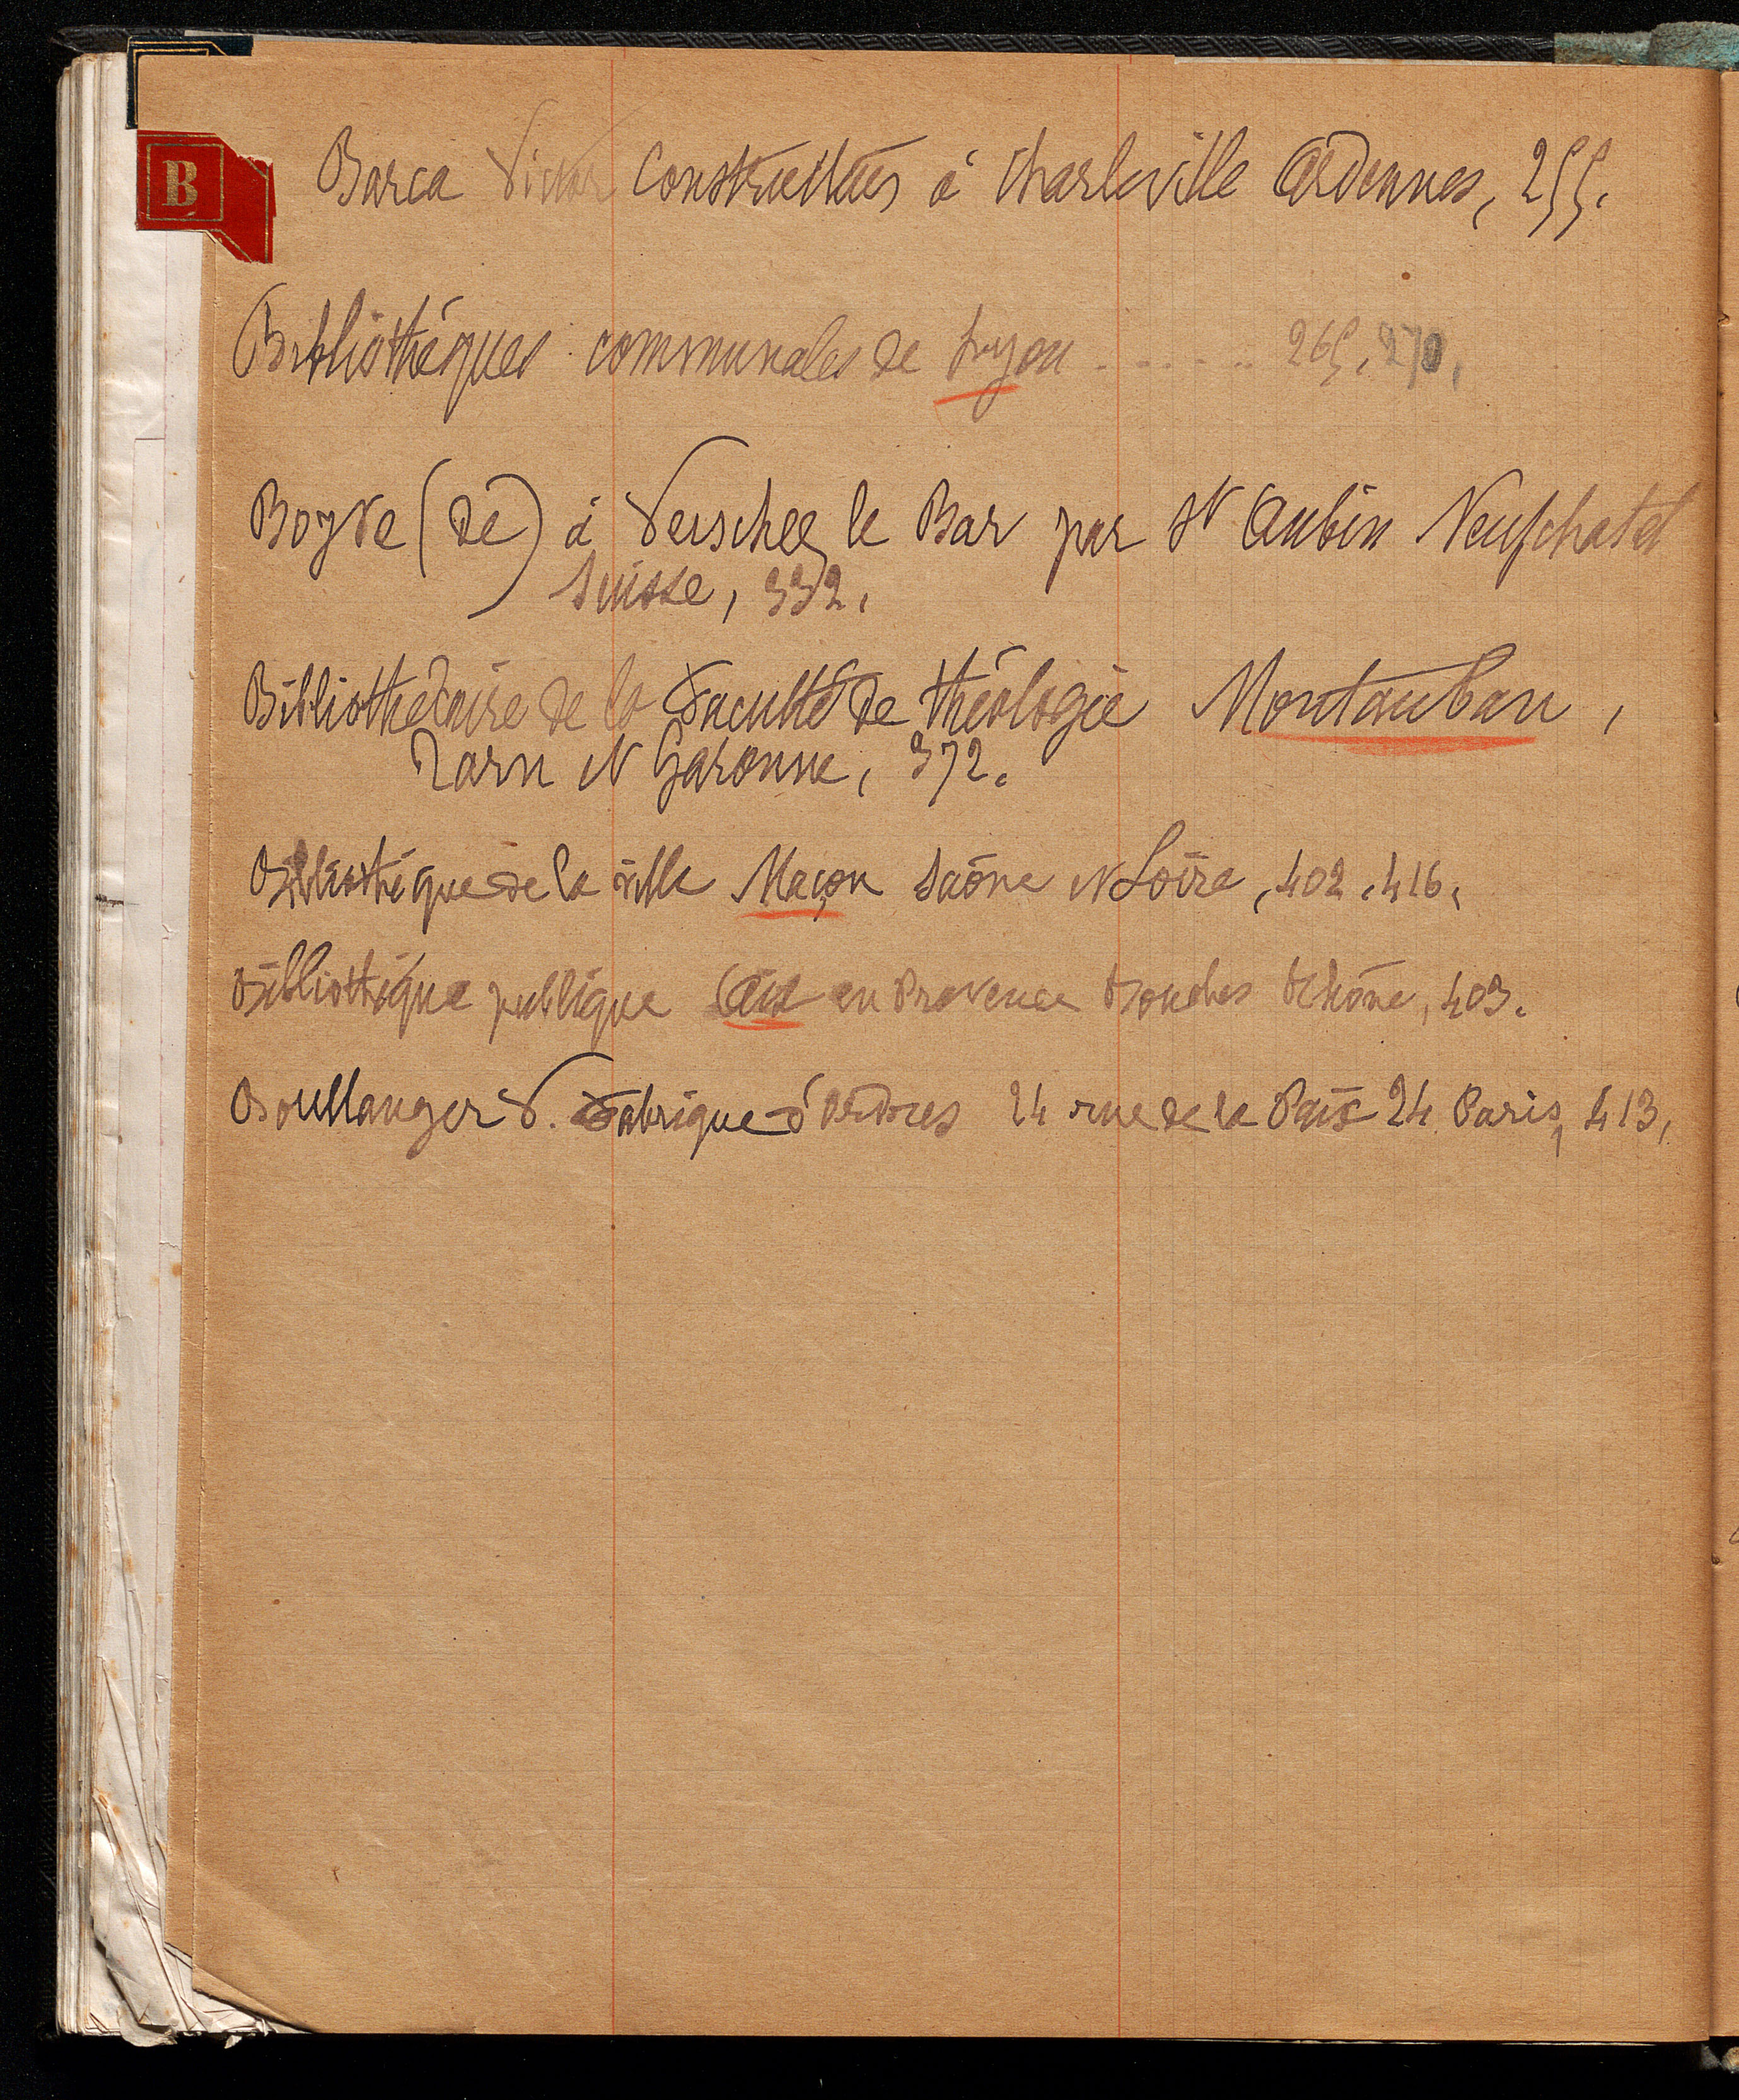 B
Barca Victor Constructeurs à Charleville Ardennes, 255.
Bibliothèques communales de Lyon ..... 265, 270,
Boyve (de) à Verschez le Bar par St Aubin Neufchatel
Suisse, 332.
Bibliothécaire de la Faculté de théologie Montauban,
Tarn et Garonne, 372.
Bibliothèque de la ville Maçon Saône et Loire, 402, 416,
Bibliothèque publique Aix en Provence Bouches Rhône, 403.
Boullanger V. Fabrique d'ordres 24 rue de la Paix 24 Paris, 413,